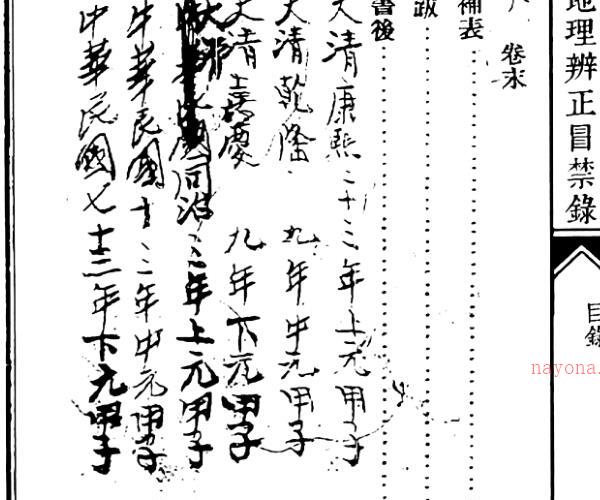 地理辨正冒禁錄
目錄
卷末
補表
跋
書後
大清康熙二十三年上元甲子
大清乾隆九年中元甲子
大清嘉慶九年下元甲子
大清同治三年上元甲子
中華民國十三年中元甲子
中華民國七十三年下元甲子
nayona.